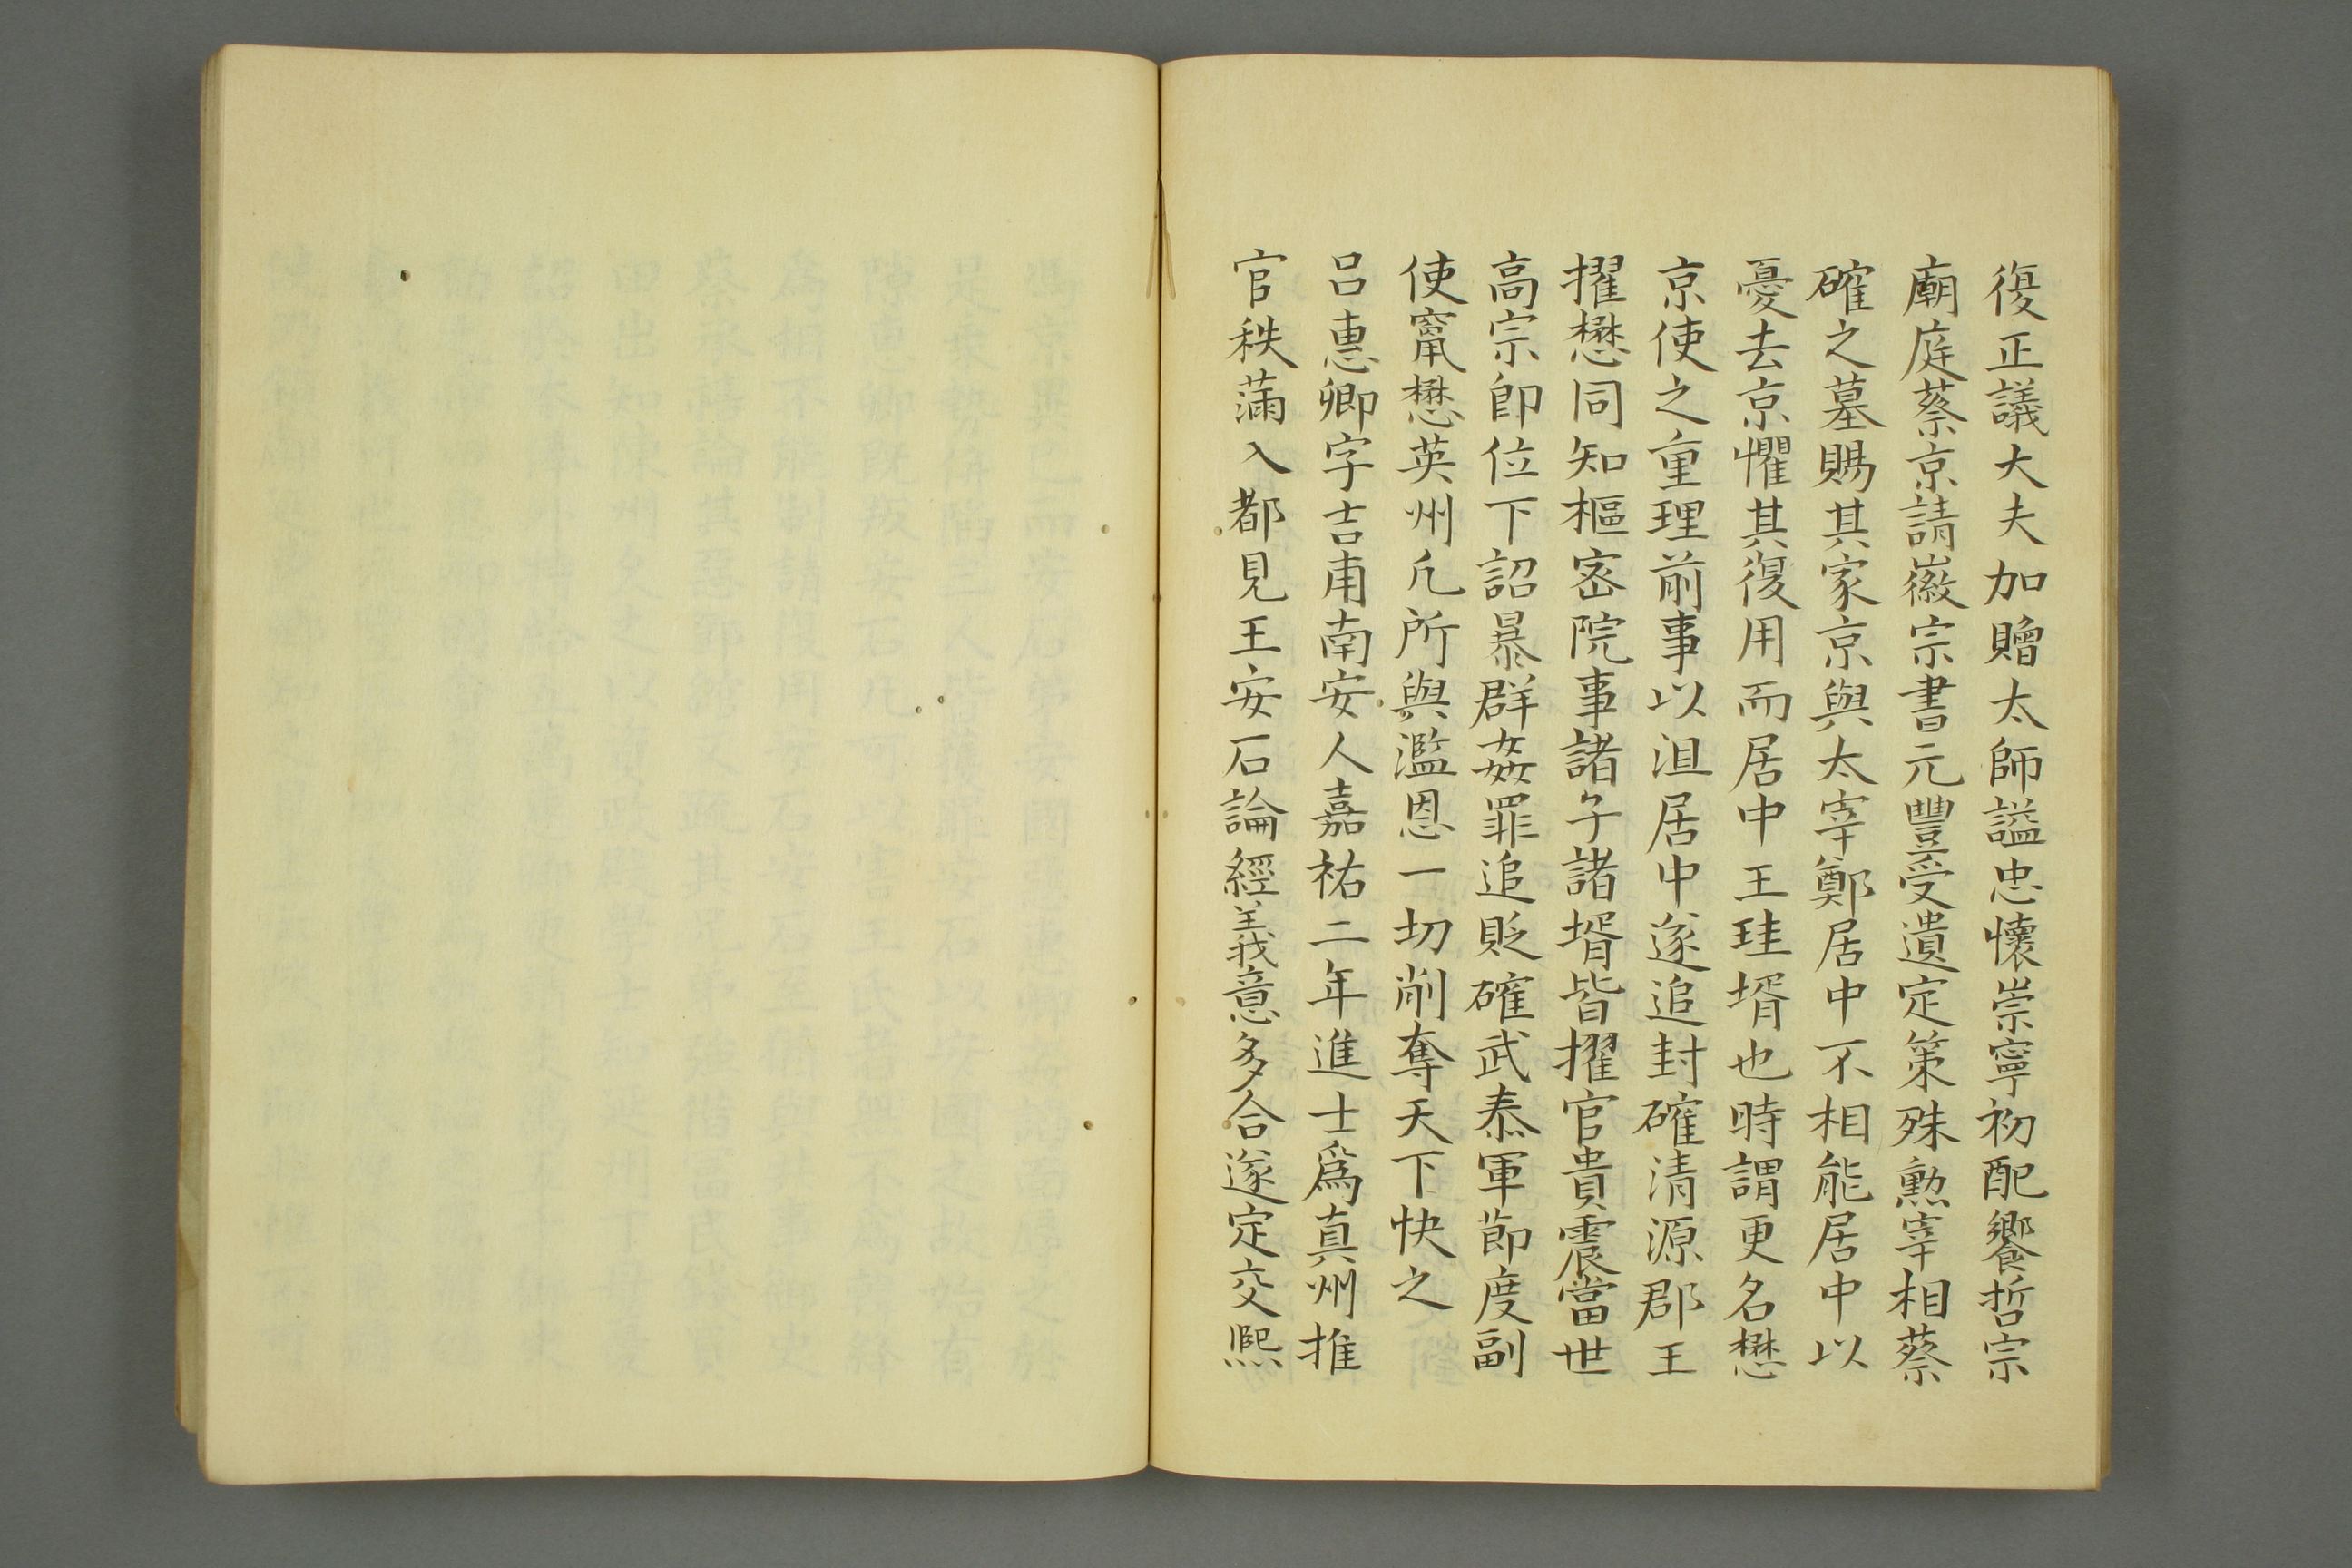 復正議大夫加贈太師謚忠懷崇寧初配饗哲宗
廟庭蔡京請徽宗書元豐受遺定策殊勲宰相蔡
確之墓賜其家京與太宰鄭居中不相能居中以
憂去京懼其復用而居中王珪壻也時謂更名懋
京使之重理前事以沮居中遂追封確清源郡王
擢懋同知樞密院事諸子諸壻皆擢官貴震當世
高宗即位下詔暴群姦罪追貶確武泰軍節度副
使竄懋英州凡所與濫恩一切削奪天下快之
呂惠卿字吉甫南安人嘉祐二年進士爲真州推
官秩滿入都見王安石論經義意多合遂定交熙